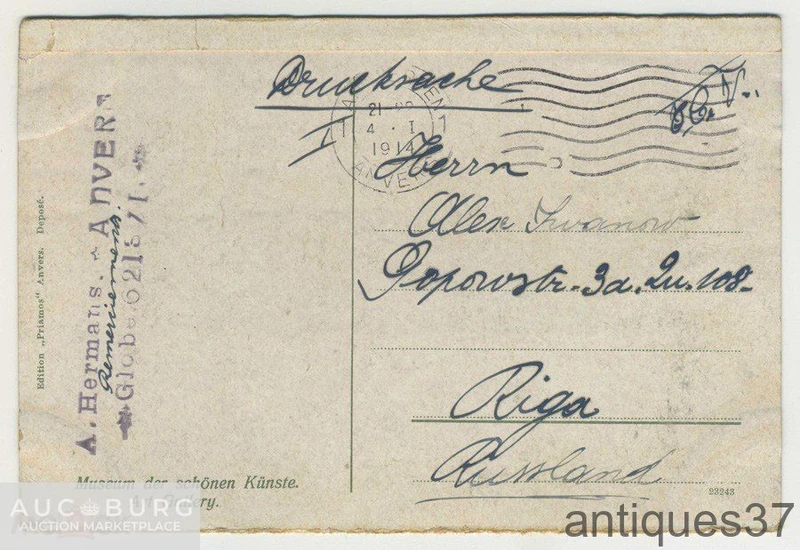 Drucksache
I
ANTWERPEN
21
4 · I
1914
ANVERS
Herrn
Alex Iwanow
Popowstr. 3a. Qu. 108.
Riga
Russland
Edition „Priamos" Anvers. Deposé.
A. Hermans. - ANVERS
Remerciements.
Globe
Museum der schönen Künste.
Art Gallery.
23243
AUC BURG
AUCTION MARKETPLACE
antiques37